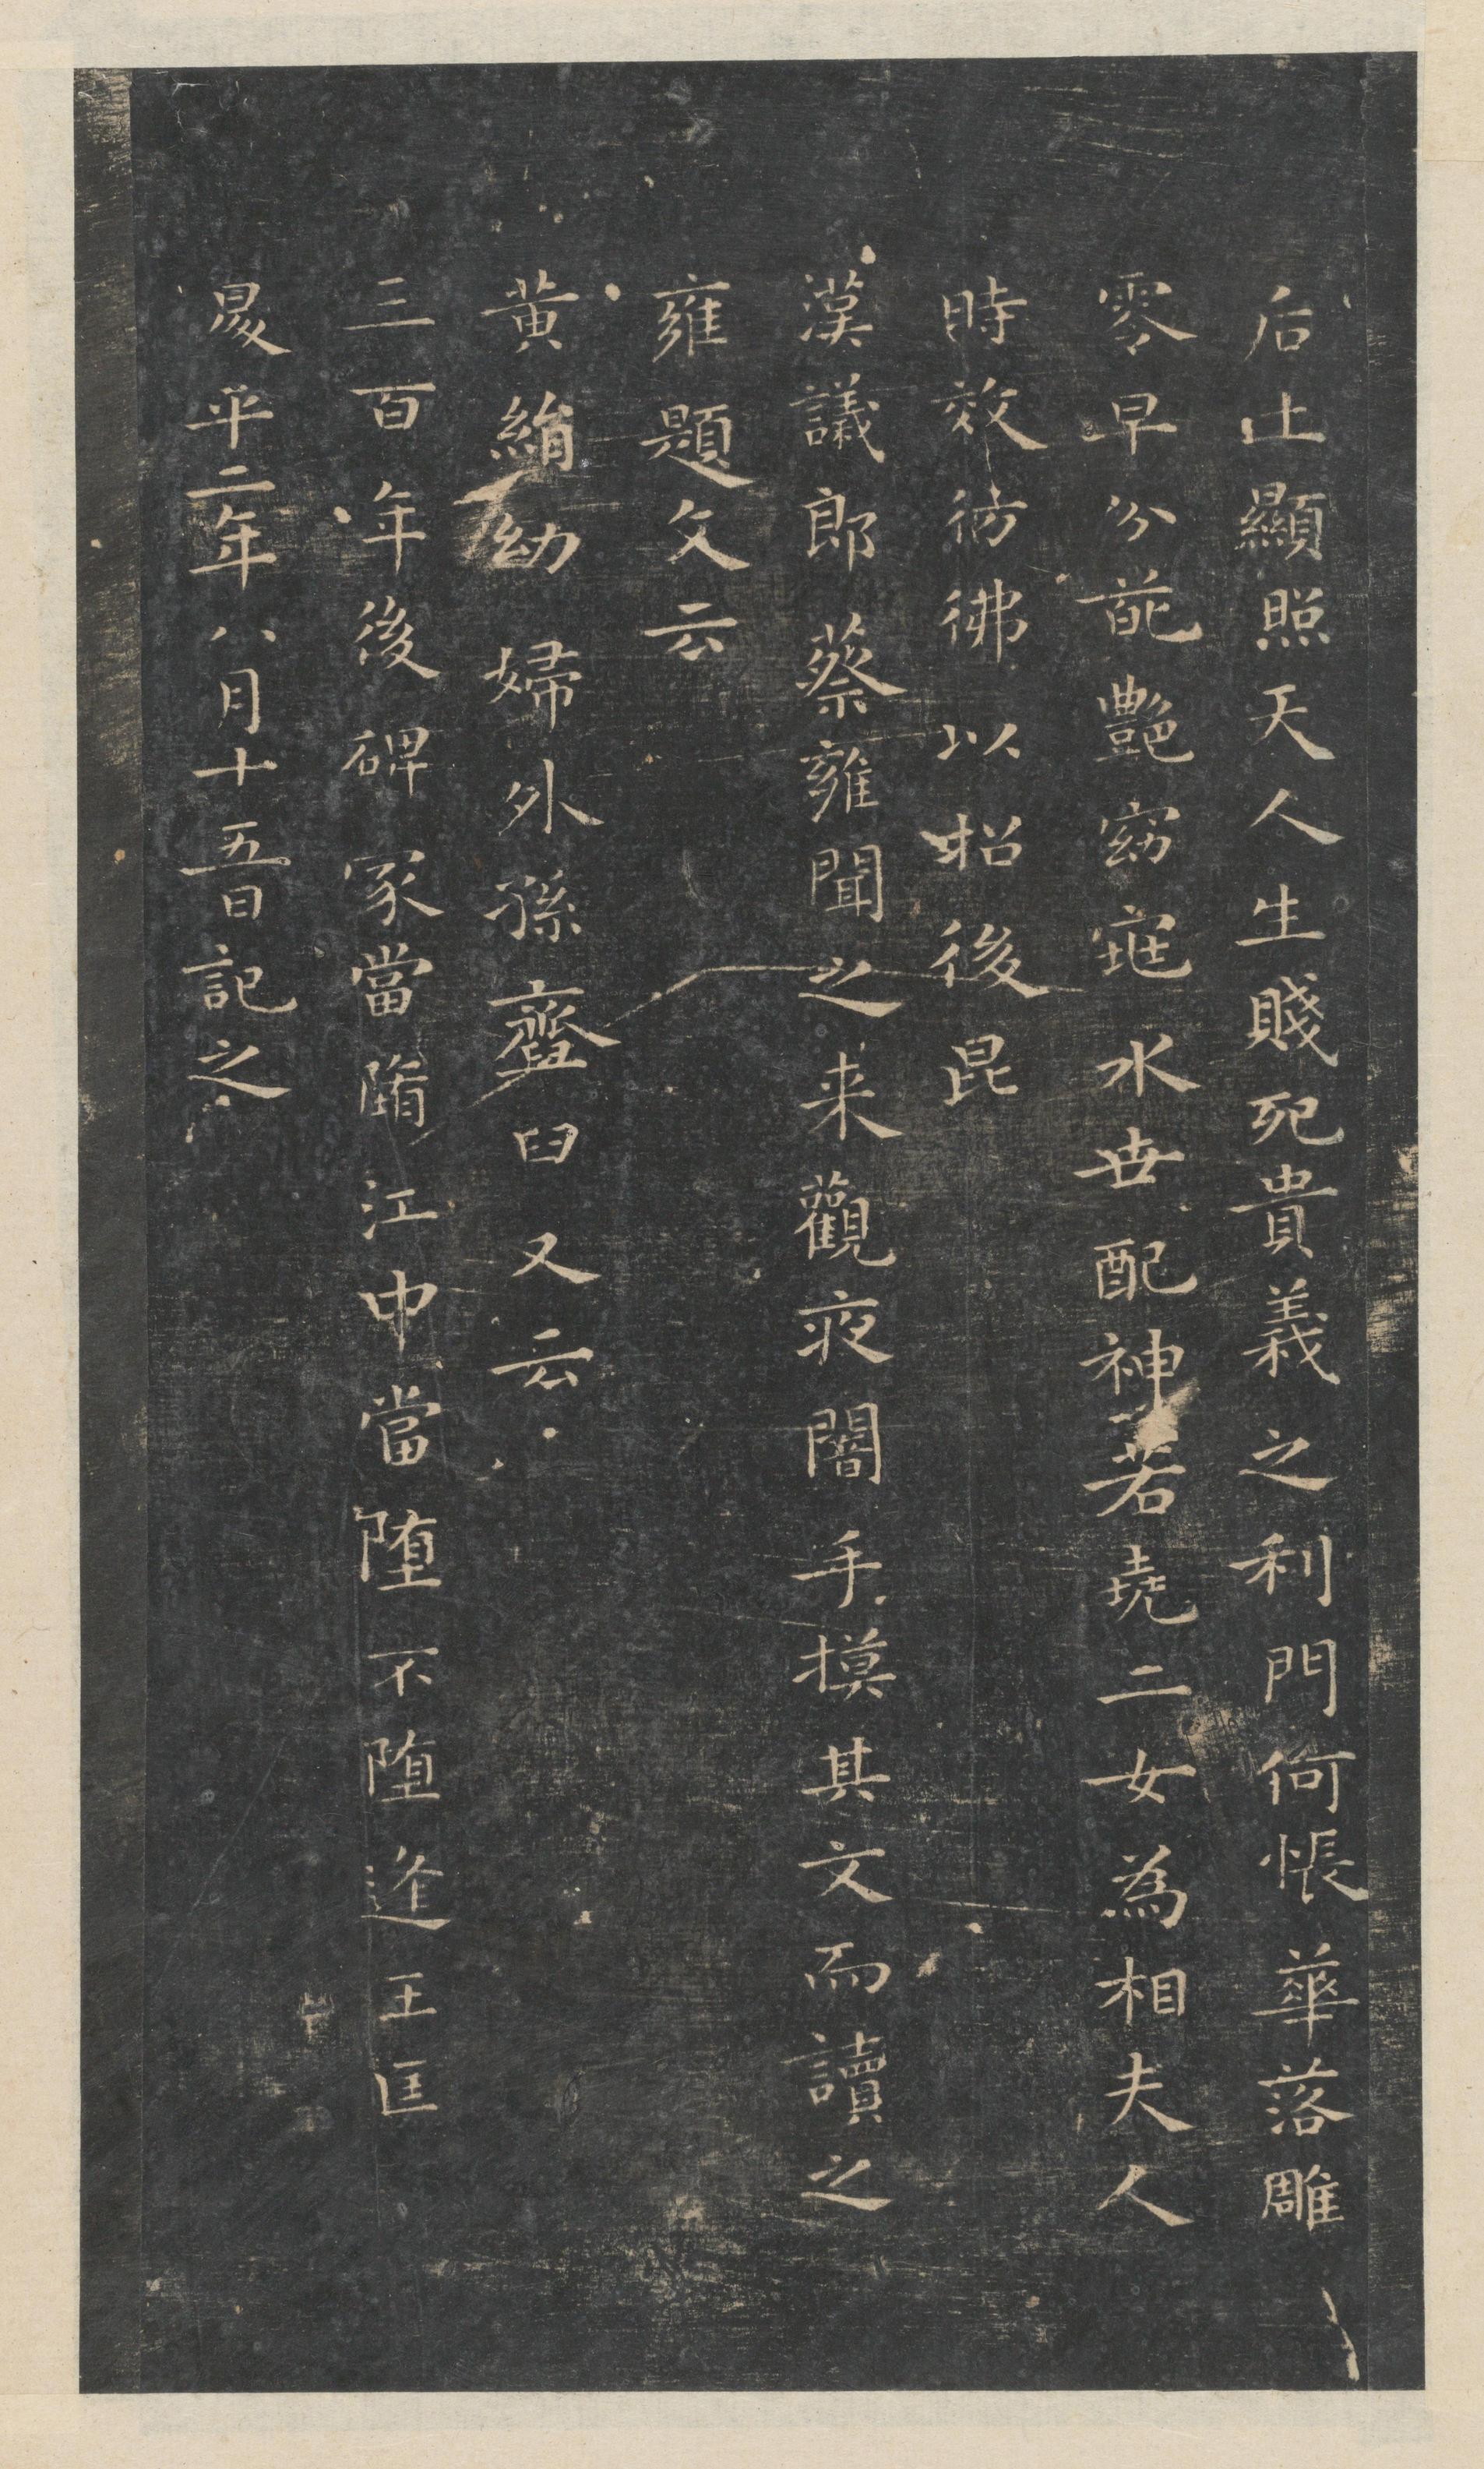 后土顯照天人生賤死貴義之利門何悵華落雕
零早分葩艷窈窕永世配神若堯二女為相夫人
時效彷彿以招後昆
漢議郎蔡雍聞之来觀夜闇手摸其文而讀之
雍題文云
黃絹幼婦外孫齏臼又云
三百年後碑冢當墮江中當墮不墮逢王匡
昇平二年八月十五日記之